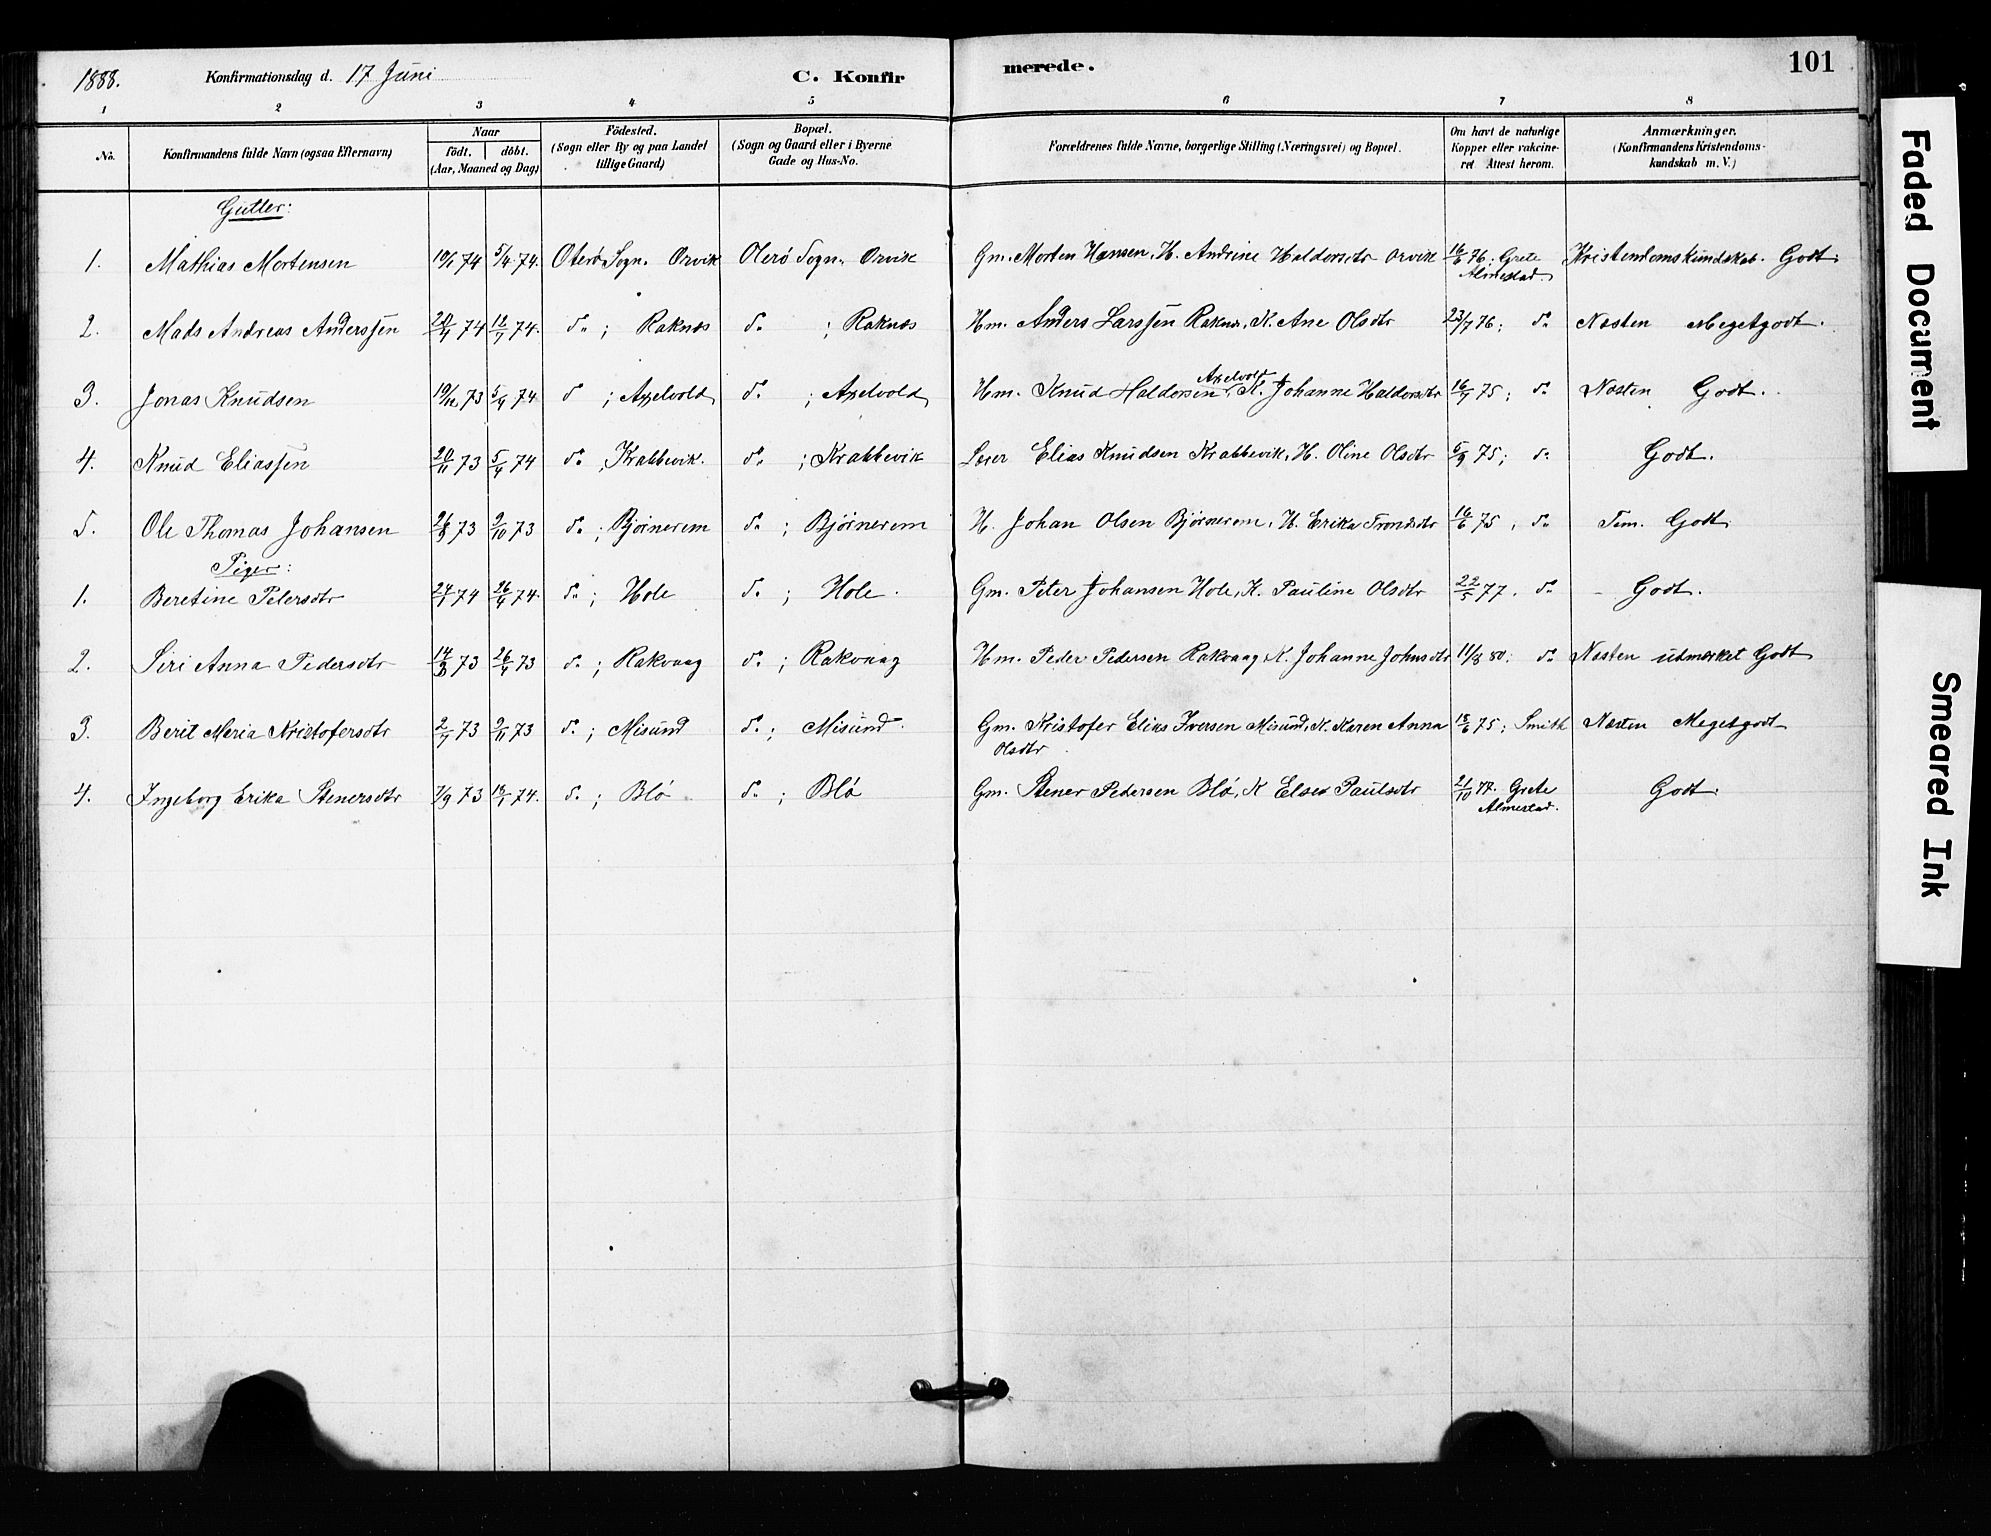 1888. Konfirmationsdag d. 17 Juni C. Konfirmerede. 101
1 2 3 4 5 6 7 8
No. Konfirmandens fulde Navn (ogsaa Efternavn) Naar födt. döbt. (Aar, Maaned og Dag) Födested. (Sogn eller By og paa Landet tillige Gaard) Bopæl. (Sogn og Gaard eller i Byerne Gade og Hus-No. Forældrenes fulde Navne, borgerlige Stilling (Næringsvei) og Bopæl. Om havt de naturlige Kopper eller vakcineret Attest herom. Anmærkninger. (Konfirmandens Kristendomskundskab m. V.)
Gutter:
1. Mathias Mortensen 74 5/4 74. Oterö Sogn. Orvik Oterö Sogn. Orvik Gm. Morten Hansen, H. Andrine Haldorsdtr Orvik 16/6 76; Grete Almestad. Kristendomskundskab. Godt.
2. Mads Andreas Anderssen 74 12/7 74. do ; Raknes do ; Raknes Hm. Anders Larssen Raknes, K. Ane Olsdtr 23/7 76; do Næsten Megetgodt.
3. Jonas Knudsen 19/12 73 5/4 74 do ; Axelvold do ; Axelvold Hm. Knud Haldorsen Axelvold, K. Johanne Haldorsdtr 16/7 75; do Næsten Godt.
4. Knud Eliassen 20/11 73 5/4 74 do ; Krabbevik. do ; Krabbevik Leier Elias Knudsen Krabbevik, H. Oline Olsdtr 75; do Godt.
5. Ole Thomas Johansen 73 9/10 73 do ; Björnerem do ; Björnerem H. Johan Olsen Björnerem, H. Erika Trondsdtr 16/6 75, do Tem. Godt
Piger:
1. Beretine Petersdtr 74 26/4 74. do ; Hole do ; Hole. Gm. Peter Johansen Hole, K. Pauline Olsdtr 22/5 77. do - Godt.
2. Siri Anna Pedersdtr 14/3 73 26/4 73 do ; Rakvaag do ; Rakvaag Hm. Peder Pedersen Rakvaag K. Johanne Johnsdtr 11/8 80; do Næsten utmerket Godt
3. Berit Meria Kristofersdtr 2/7 73 2/11 73 do ; Misund do ; Misund. Gm. Kristofer Elias Iversen Misund, K. Karen Anna Olsdtr. 18/6 75; Smith Næsten Megetgodt
4. Ingeborg Erika Stenersdtr 7/9 73 18/1 74. do ; Blö do ; Blö Gm. Stener Pedersen Blö, K Elsen Paulsdtr 21/10 77. Grete Almestad. Godt.
Faded Document
Smeared Ink